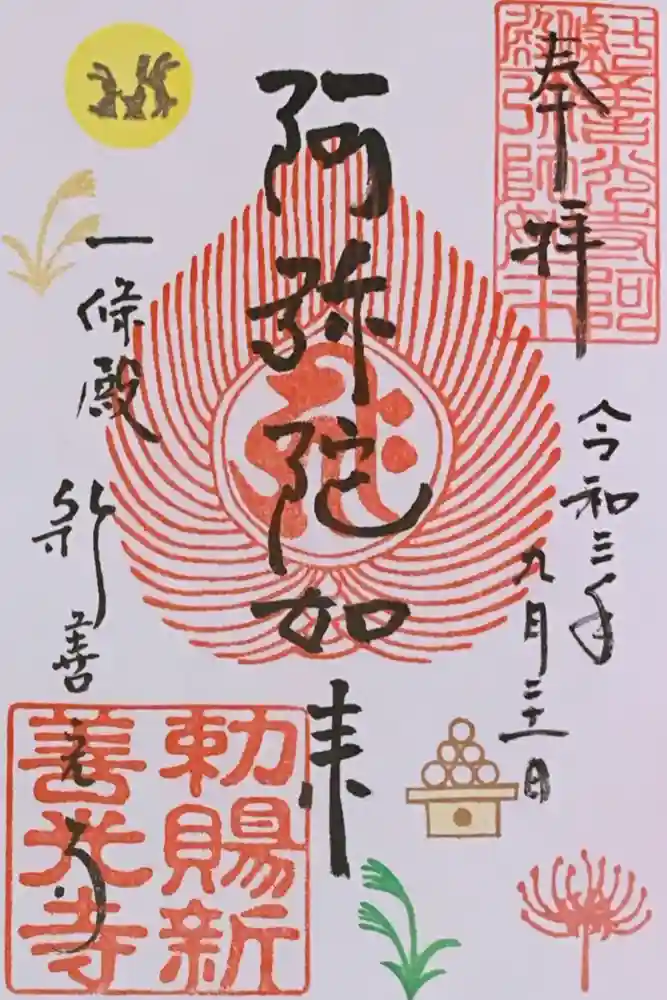 奉拝
令和三年
九月二十一日
阿弥陀如来
一條殿
新善光寺
勅賜新
善光寺